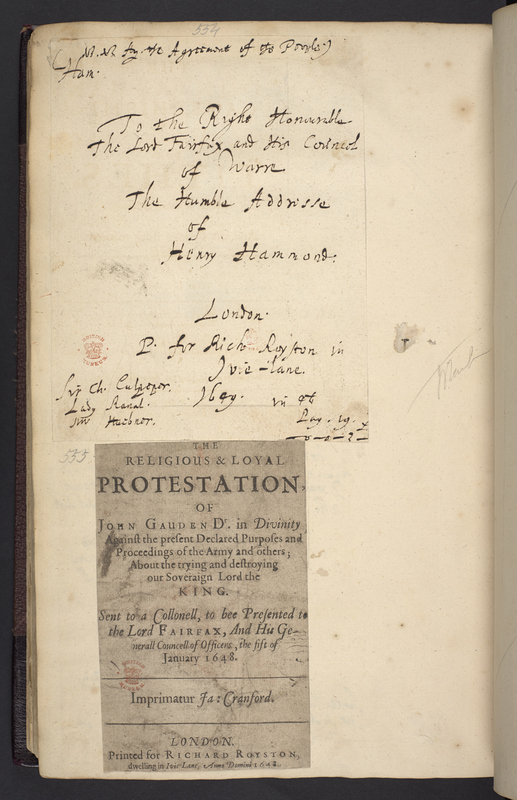 554
N. N. by the Agreement of the People)
Ham:
To the Right Honourable
The Lord Fairfax and His Councel
of Warre
The Humble Addresse
of
Henry Hammond:
London.
P. for Rich. Royston in
Ivie-lane.
1649. in
Sir Ch. Culpeper.
Lady Ranal.
Mr Huebner.
Pag. 19.
BRITISH MUSEUM
555
THE
RELIGIOUS & LOYAL
PROTESTATION,
OF
JOHN GAUDEN Dr. in Divinity
Against the present Declared Purposes and
Proceedings of the Army and others;
About the trying and destroying
our Soveraign Lord the
KING.
Sent to a Collonell, to bee Presented to
the Lord FAIRFAX, And His Ge-
nerall Councell of Officers, the fift of
January 1648.
Imprimatur Ja: Cranford.
LONDON.
Printed for RICHARD ROYSTON,
dwelling in Ivie Lane, Anno Domini 1648.